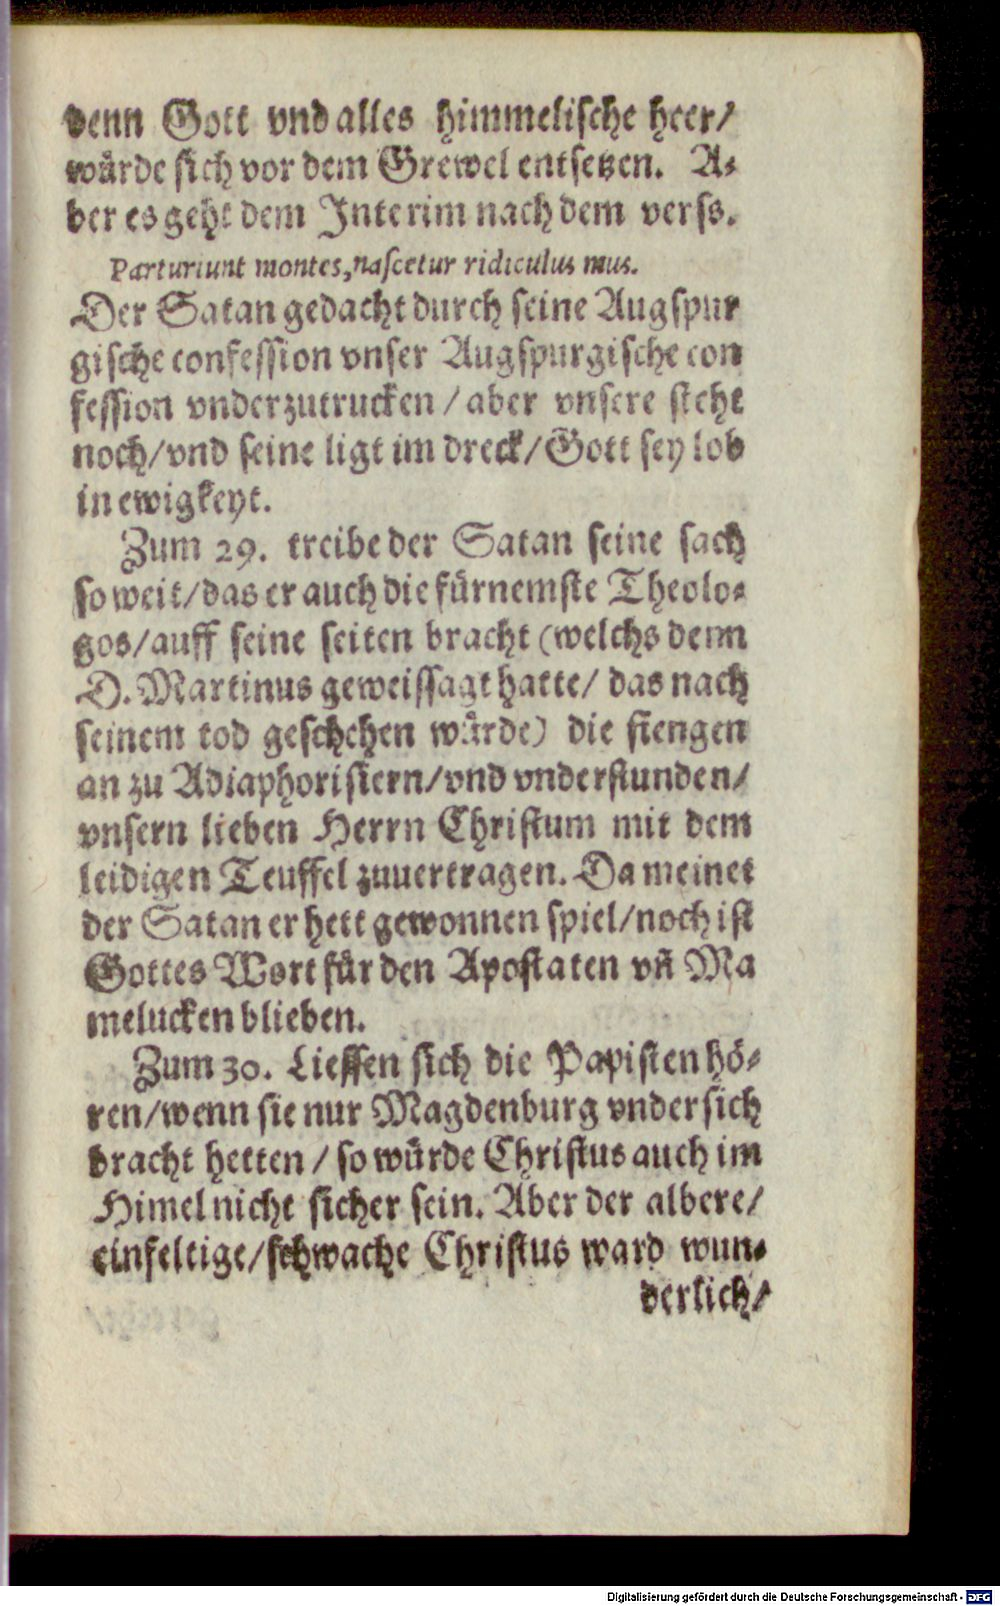 denn Gott vnd alles himmelische heer/
wuͤrde sich vor dem Grewel entsetzen. A⸗
ber es geht dem Interim nach dem verss.
Parturiunt montes, nascetur ridiculus mus.
Der Satan gedacht durch seine Augspur
gische confession vnser Augspurgische con
fession vnderzutrucken / aber vnsere steht
noch/vnd seine ligt im dreck/Gott sey lob
in ewigkeyt.
Zum 29. treibe der Satan seine sach
so weit/das er auch die fürnemste Theolo⸗
gos/auff seine seiten bracht (welchs denn
D. Martinus geweissagt hatte/ das nach
seinem tod geschehen wuͤrde) die fiengen
an zu Adiaphoristern/vnd vnderstunden/
vnsern lieben Herrn Christum mit dem
leidigen Teuffel zuuertragen. Da meinet
der Satan er hett gewonnen spiel/noch ist
Gottes Wort für den Apostaten vñ Ma
melucken blieben.
Zum 30. Liessen sich die Papisten hö⸗
ren/wenn sie nur Magdenburg vnder sich
bracht hetten / so würde Christus auch im
Himel nicht sicher sein. Aber der albere/
einfeltige/schwache Christus ward wun⸗
derlich/
Digitalisierung gefördert durch die Deutsche Forschungsgemeinschaft - DFG